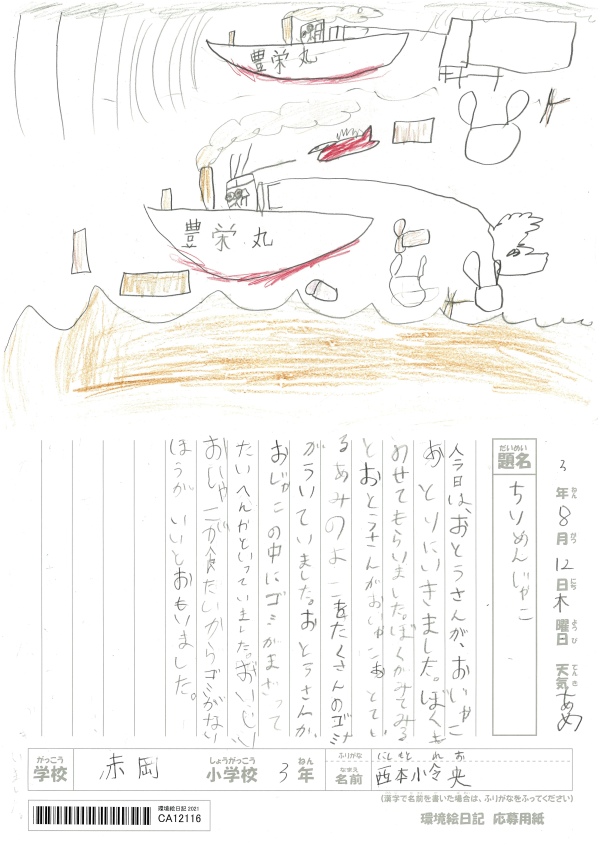 豊栄丸
豊栄丸
3年8月12日木曜日 天気あめ
ねん がつ にち ようび てんき
だいめい
題名
ちりめんじゃこ
今日は、おとうさんが、おじゃこ
お とりにいきました。ぼくも
のせてもらいました。ぼくがみてみる
とおとうさんがおじゃこお とてい
るあみのよこをたくさんのゴミ
がういていました。おとうさんが、
おじゃこの中にゴミがまざって
たいへんだといっていました。おいしい
おじゃこが食たいからゴミがない
ほうが いいとおもいました。
がっこう
学校
赤岡
しょうがっこう
小学校
3
ねん
年
ふりがな
にしもと れお
なまえ
名前
西本小令央
(漢字で名前を書いた場合は、ふりがなをふってください)
環境絵日記 2021
CA12116
環境絵日記 応募用紙